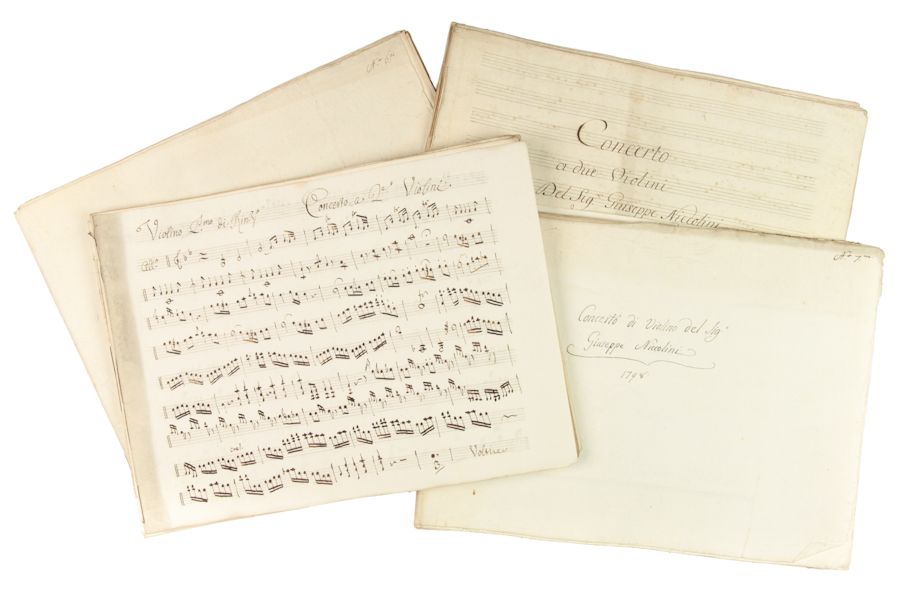 N.º 6.º
Concerto
a due Violini
Del Sig.r Giuseppe Niccolini
Violino P.mo di Rin.zo
Concerto a 2.e Violini
All.o
cres:
Volti
N.º 7.mo
Concerto di Violino del Sig.r
Giuseppe Niccolini
1798